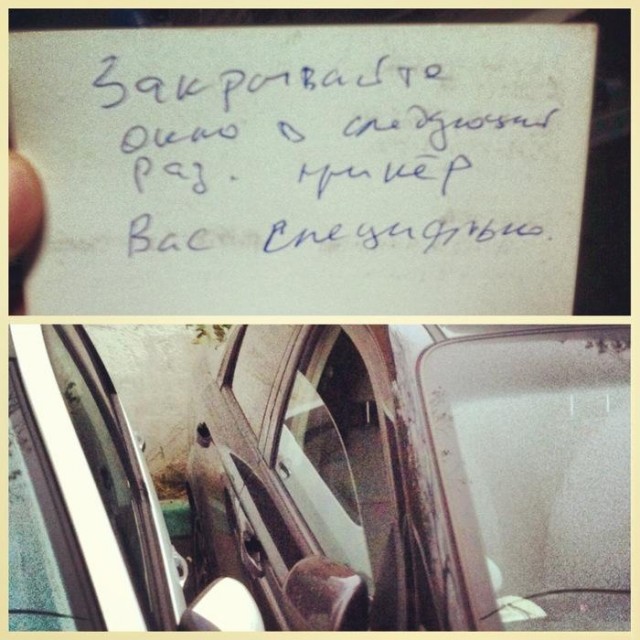 Закрывайте
окно в следующий
раз. прикёр
Вас специфльно.